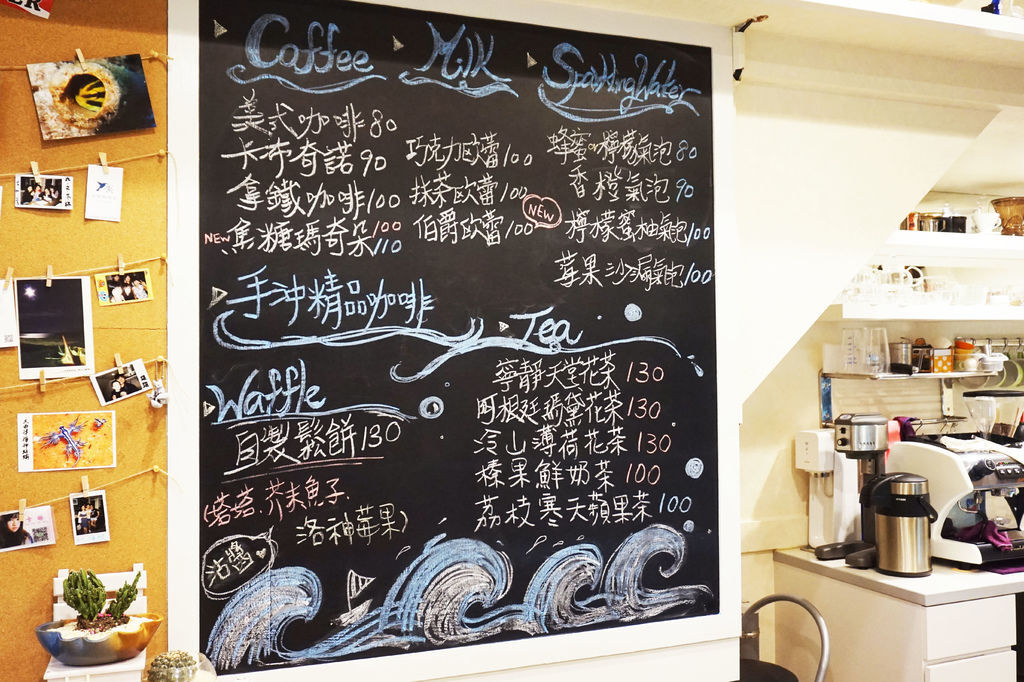 Coffee
美式咖啡 80
卡布奇諾 90
拿鐵咖啡 100
NEW 焦糖瑪奇朵 100
110
手沖精品咖啡
Milk
巧克力歐蕾 100
抹茶歐蕾 100
伯爵歐蕾 100
Sparkling Water
蜂蜜檸檬氣泡 80
香橙氣泡 90
NEW 檸檬蜜柚氣泡 100
莓果沙漏氣泡 100
Waffle
自製鬆餅 130
芥末魚子.
洛神莓果)
沾醬
Tea
寧靜天堂花茶 130
阿根廷瑪黛花茶 130
冷山薄荷花茶 130
榛果鮮奶茶 100
荔枝寒天蘋果茶 100